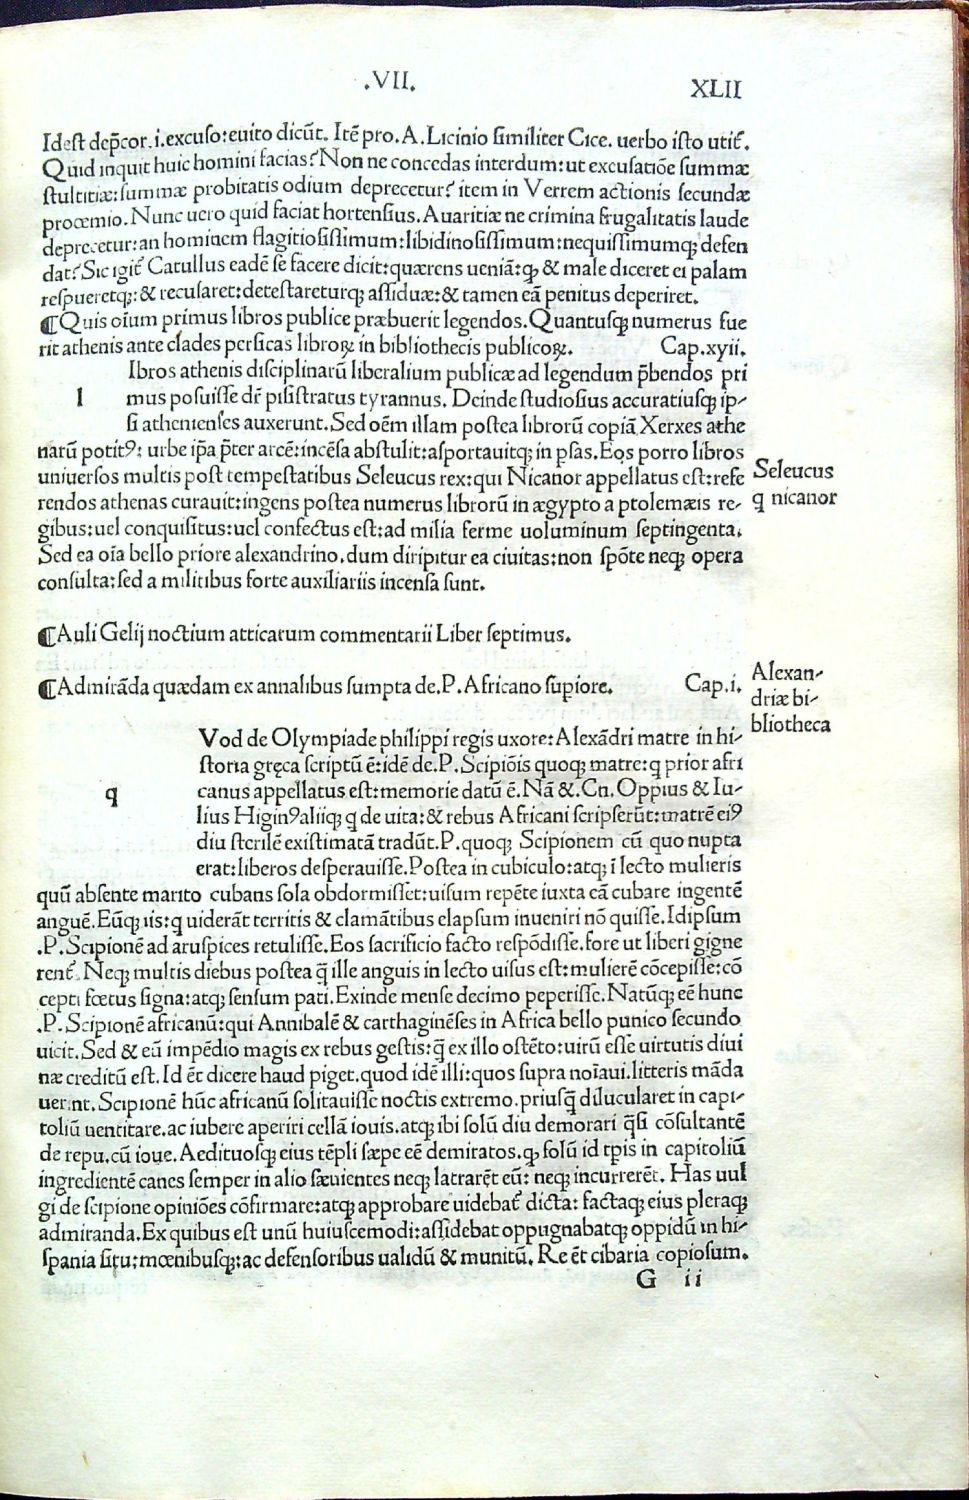 .VII.
XLII
Idest dep̄cor.i.excuso:euito dicũt. Itẽ pro.A.Licinio similiter Cice. uerbo isto utit᷑.
Quid inquit huic homini facias?Non ne concedas interdum:ut excusatiõe summæ
stultitiæ:summæ probitatis odium deprecetur? item in Verrem actionis secundæ
proœmio.Nunc uero quid faciat hortensius.Auaritiæ ne crimina frugalitatis laude
deprecetur:an hominem flagitiosissimum:libidinosissimum:nequissimumqꝫ defen
dat?Sic igit᷑ Catullus eadẽ se facere dicit:quærens ueniã:ꝙ & male diceret ei palam
respueretqꝫ:& recusaret:detestareturqꝫ assiduæ:& tamen eã penitus deperiret.
¶Quis oĩum primus libros publice præbuerit legendos.Quantusqꝫ numerus fue
rit athenis ante clades persicas libroꝝ in bibliothecis publicoꝝ. Cap.xyii.
Ibros athenis disciplinarũ liberalium publicæ ad legendum p̄bendos pri
l mus posuisse dr̃ pisistratus tyrannus. Deinde studiosius accuratiusqꝫ ip-
si athenienses auxerunt.Sed oẽm illam postea librorũ copiã Xerxes athe
narũ potitꝰ: urbe ip̃a p̄ter arcẽ:incẽsa abstulit:asportauitqꝫ in p̱sas.Eos porro libros
uniuersos multis post tempestatibus Seleucus rex:qui Nicanor appellatus est:refe
rendos athenas curauit:ingens postea numerus librorũ in ægypto a ptolemæis re-
gibus:uel conquisitus:uel confectus est:ad milia ferme uoluminum septingenta.
Sed ea oĩa bello priore alexandrino.dum diripitur ea ciuitas:non spõte neqꝫ opera
consulta:sed a militibus forte auxiliariis incensa sunt.
Seleucus
q nicanor
¶Auli Gelij noctium atticarum commentarii Liber septimus.
¶Admirãda quædam ex annalibus sumpta de.P.Africano sup̱iore. Cap.i.
Alexan-
driæ bi-
bliotheca
Vod de Olympiade philippi regis uxore:Alexãdri matre in hi-
storia gręca scriptũ ẽ:idẽ de.P.Scipiõis quoqꝫ matre:q prior afri
q canus appellatus est:memorie datũ ẽ.Nã &.Cn.Oppius & Iu-
lius Higinꝰaliiqꝫ q de uita:& rebus Africani scripserũt:matrẽ eiꝰ
diu sterilẽ existimatã tradũt.P.quoqꝫ Scipionem cũ quo nupta
erat:liberos desperauisse.Postea in cubiculo:atqꝫ ĩ lecto mulieris
quũ absente marito cubans sola obdormisset:uisum repẽte iuxta eã cubare ingentẽ
anguẽ.Eũqꝫ iis:q uiderãt territis & clamãtibus elapsum inueniri nõ quisse.Idipsum
.P.Scipionẽ ad aruspices retulisse.Eos sacrificio facto respõdisse.fore ut liberi gigne
rent᷑. Neqꝫ multis diebus postea q̃ ille anguis in lecto uisus est:mulierẽ cõcepisse:cõ
cepti fœtus signa:atqꝫ sensum pati.Exinde mense decimo peperisse.Natũqꝫ eẽ hunc
.P.Scipionẽ africanũ:qui Annibalẽ & carthaginẽses in Africa bello punico secundo
uicit.Sed & eũ impẽdio magis ex rebus gestis:q̃ ex illo ostẽto:uirũ esse uirtutis diui
næ creditũ est.Id ẽt dicere haud piget.quod idẽ illi:quos supra noĩaui.litteris mãda
uerunt.Scipionẽ hũc africanũ solitauisse noctis extremo.priusq̃ dilucularet in capi-
toliũ uentitare.ac iubere aperiri cellã iouis.atqꝫ ibi solũ diu demorari q̃si cõsultantẽ
de repu.cũ ioue.Aedituosqꝫ eius tẽpli sæpe eẽ demiratos.ꝙ solũ id tp̃is in capitoliũ
ingredientẽ canes semper in alio sæuientes neqꝫ latrarẽt eũ: neqꝫ incurrerẽt. Has uul
gi de scipione opiniões cõfirmare:atqꝫ approbare uidebat᷑ dicta: factaqꝫ eius pleraqꝫ
admiranda.Ex quibus est unũ huiuscemodi:assidebat oppugnabatqꝫ oppidũ in hi-
spania situ:mœnibusqꝫ:ac defensoribus ualidũ & munitũ. Re ẽt cibaria copiosum.
G ii